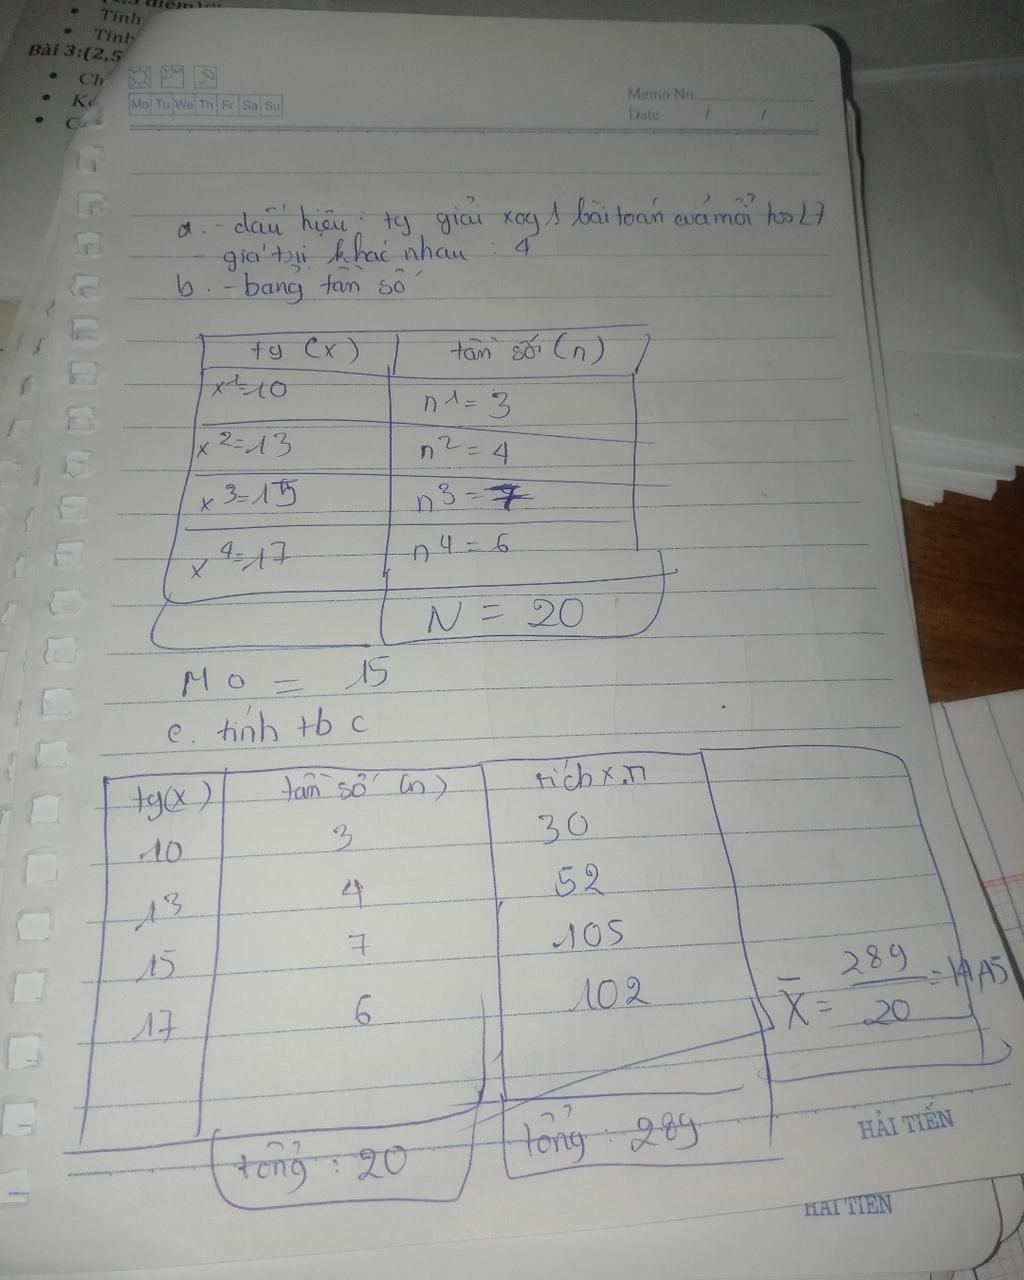 Tính
Tính
Bài 3:(2,5
Ch
Mo Tu We Th Fr Sa Su
Memo No.
Date / /
a. - dấu hiệu : tg giải xog 1 bài toán của mỗi hs L7
- giá trị khác nhau : 4
b. - bảng tần số
tg (x) tần số (n)
x1=10 n1= 3
x2=13 n2 = 4
x3=15 n3 = 7
x4=17 n4 = 6
N = 20
M o = 15
c. tính tb c
tg(x) tần số (n) tích x.n
10 3 30
13 4 52
15 7 105
17 6 102
X̄ = 289/20 = 14,45
tổng : 20 tổng : 289
HẢI TIẾN
HẢI TIẾN